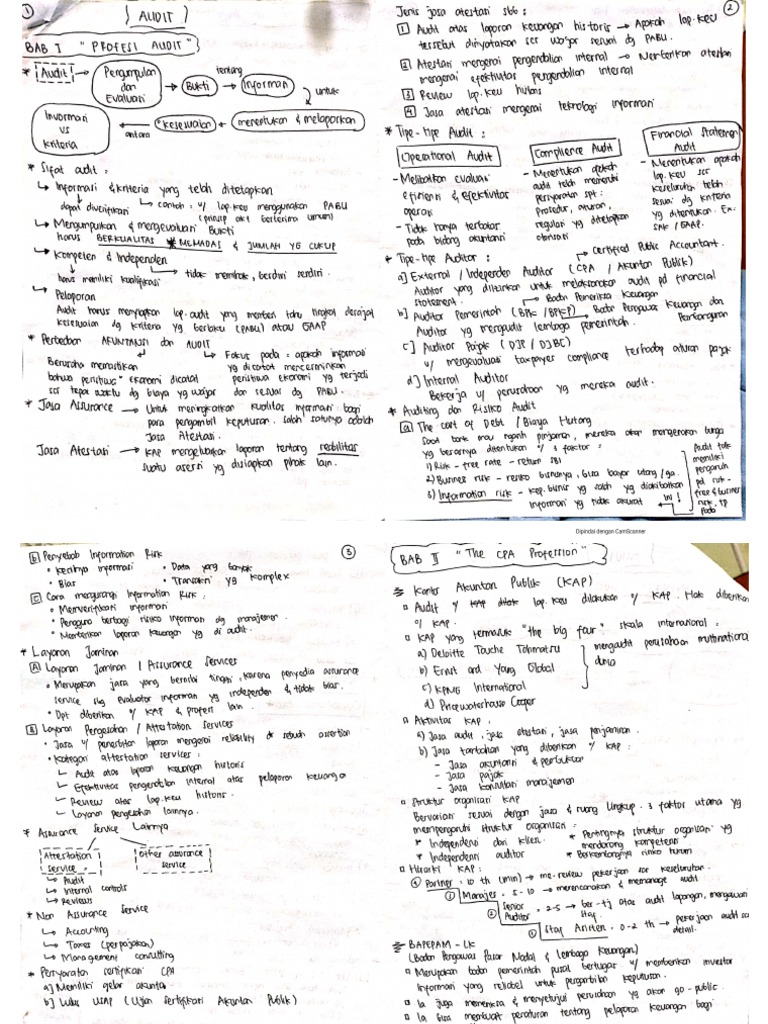 1
AUDIT
BAB I "PROFESI AUDIT"
* Audit → Pengumpulan dan Evaluasi → Bukti tentang → Informasi
untuk
Informasi vs Kriteria ← antara kesesuaian ← menentukan & melaporkan
* Sifat audit :
↳ Informasi & kriteria yang telah ditetapkan
dapat diverifikasi ↳ contoh : u/ lap.keu menggunakan PABU
(prinsip akt berterima umum)
↳ Mengumpulkan & mengevaluasi Bukti
harus BERKUALITAS MEMADAI & JUMLAH YG CUKUP
↳ Kompeten & Independen
harus memiliki kualifikasi ↳ tidak memihak, berdiri sendiri.
↳ Pelaporan
Audit harus menyiapkan lap.audit yang memberi tahu tingkat derajat
kesesuaian dg kriteria yg berlaku (PABU) atau GAAP
* Perbedaan AKUNTANSI dan AUDIT
Berusaha memastikan
bahwa peristiwa" ekonomi dicatat
scr tepat waktu dg biaya yg wajar
↳ Fokus pada : apakah informasi
yg dicatat mencerminkan
peristiwa ekonomi yg terjadi
dan sesuai dg PABU.
* Jasa Assurance → Untuk meningkatkan kualitas informasi bagi
para pengambil keputusan. salah satunya adalah
Jasa Atestasi.
Jasa Atestasi → KAP mengeluarkan laporan tentang reabilitas
suatu asersi yg disiapkan pihak lain.
2
Jenis jasa atestasi sbb :
1 Audit atas laporan keuangan historis → Apakah lap.keu
tersebut dinyatakan scr wajar sesuai dg PABU.
2 Atestasi mengenai pengendalian internal → Memberikan atestasi
mengenai efektivitas pengendalian internal
3 Review lap.keu historis
4 Jasa atestasi mengenai teknologi informasi
* Tipe-tipe Audit :
Operational Audit
- Melibatkan evaluasi
efisiensi & efektivitas
operasi
- Tidak hanya terbatas
pada bidang akuntansi
Compliance Audit
- Menentukan apakah
audit telah memenuhi
persyaratan spt :
Prosedur, aturan,
regulasi yg ditetapkan
otorisasi
Financial Statemen Audit
- Menentukan apakah
lap.keu scr
keseluruhan telah
sesuai dg kriteria
yg ditentukan. Ex:
SAK / GAAP.
* Tipe-tipe Auditor :
→ Certified Public Accountant.
a] External / Independen Auditor (CPA / Akuntan Publik)
Auditor yang diizinkan untuk melaksanakan audit pd financial
statement.
→ Badan Pemeriksa Keuangan
b] Auditor Pemerintah (BPK / BPKP) → Badan Pengawas Keuangan dan Pembangunan
Auditor yg mengaudit lembaga pemerintah.
c] Auditor Pajak (DJP / DJBC)
u/ mengevaluasi taxpayer compliance terhadap aturan pajak
d] Internal Auditor
Bekerja u/ perusahaan yg mereka audit.
* Auditing dan Risiko Audit
a The cost of Debt / Biaya Hutang
Saat bank mau ngasih pinjaman, mereka akan mengenakan bunga
yg besarnya ditentukan o/ 3 faktor :
1) Risk - free rate - return SBI
2) Business risk - resiko bisnisnya, bisa bayar utang /ga.
3) Information risk - kep. bisnis yg salah yg diakibatkan
informasi yg tidak akurat
Audit tdk
memiliki
pengaruh
pd risk-
free & business
risk, TP
pada
ini !
Dipindai dengan CamScanner
3
b Penyebab Information Risk
• Kecilnya informasi • Data yang banyak
• Bias • Transaksi yg komplex
c Cara mengurangi Information Risk :
• Memverifikasi informasi
• Pengguna berbagi resiko informasi dg manajemen
• Memberikan laporan keuangan yg di audit.
* Layanan Jaminan
A Layanan Jaminan / Assurance Services
• Merupakan jasa yang bernilai tinggi, karena penyedia assurance
service sbg evaluator informasi yg independen & tidak bias.
• Dpt diberikan o/ KAP & profesi lain.
B Layanan Pengesahan / Attestation Services
• Jasa u/ penerbitan laporan mengenai reliability dr sebuah assertion
• Kategori attestation services :
↳ Audit atas laporan keuangan historis
↳ Efektivitas pengendalian internal atas pelaporan keuangan
↳ Review atas lap.keu historis.
↳ Layanan pengesahan lainnya.
* Assurance Service Lainnya
Attestation service.
Other assurance service
↳ Audit
↳ Internal controls
↳ Reviews
* Non Assurance Service
↳ Accounting
↳ Taxes (perpajakan)
↳ Management consulting
* Persyaratan sertifikasi CPA
a] Memiliki gelar akuntansi
b] Lulus USAP (Ujian Sertifikasi Akuntan Publik)
BAB II "The CPA Profession"
Kantor Akuntan Publik (KAP)
Audit u/ lap.keu dilakukan o/ KAP. Hak diberikan
o/ KAP.
KAP yang termasuk "the big four" skala internasional :
a) Deloitte Touche Tohmatsu
b) Ernst and Yang Global
c) KPMG International
d) Pricewaterhouse Cooper
mengaudit perusahaan multinational
dunia
Aktivitas KAP :
a) Jasa audit, jasa atestasi, jasa penjaminan.
b) Jasa tambahan yang diberikan o/ KAP :
- Jasa akuntansi & pembukuan
- Jasa pajak
- Jasa konsultasi manajemen
Struktur organisasi KAP
Bervariasi sesuai dengan jasa & ruang lingkup. 3 faktor utama yg
mempengaruhi struktur organisasi :
* Independensi dari klien. * Pentingnya struktur organisasi yg
mendorong kompetensi
* Independensi auditor * Berkembangnya risiko hukum
Hirarki KAP :
4 Partner : 10 th (min) → me-review pekerjaan scr keseluruhan.
3 Manajer. 5-10 → merencanakan & memanage audit
2 Senior Auditor. 2-5 → ber-tj atas audit lapangan, mengawasi
staf.
1 Staf Asisten. 0-2 th → pekerjaan audit scr
detail.
BAPEPAM - LK
(Badan Pengawas Pasar Modal & Lembaga Keuangan)
Merupakan badan pemerintah pusat bertugas u/ memberikan investor
informasi yang reliabel untuk pengambilan keputusan.
Ia juga memeriksa & menyetujui perusahaan yg akan go-public.
Ia bisa membuat peraturan tentang pelaporan keuangan bagi